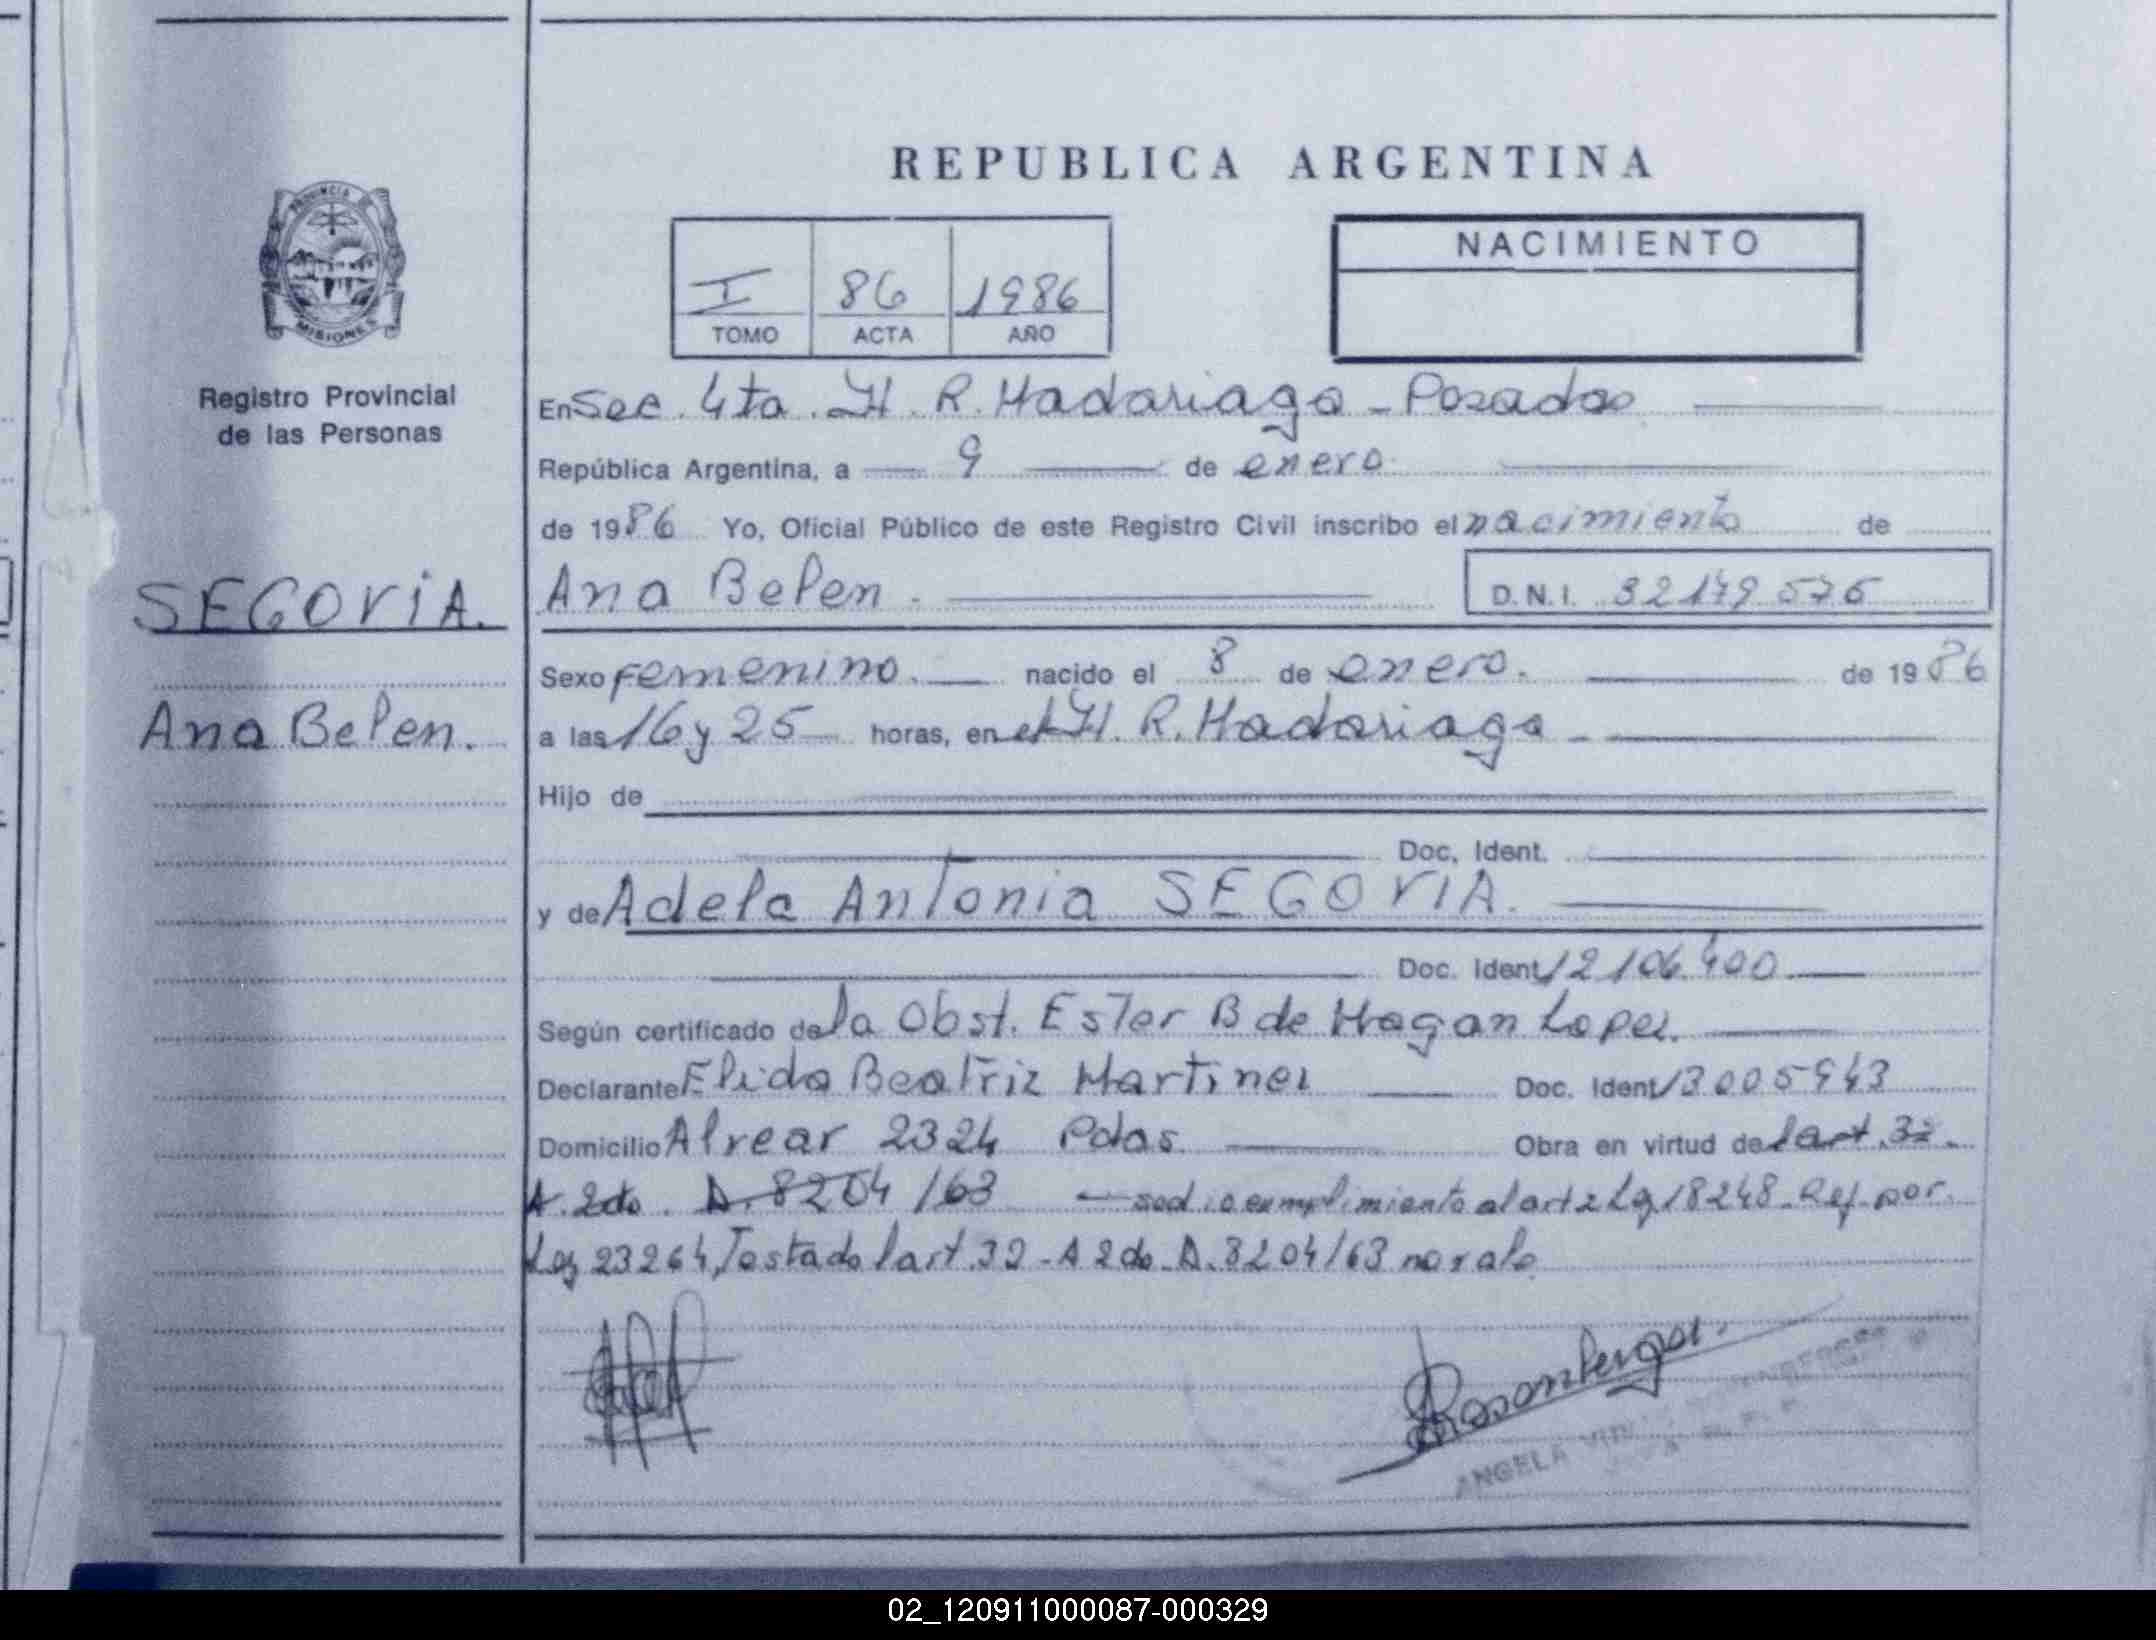 REPUBLICA ARGENTINA
PROVINCIA
MISIONES
Registro Provincial
de las Personas
I 86 1986
TOMO ACTA AÑO
NACIMIENTO
En Sec. 4ta. H. R. Madariaga - Posadas
República Argentina, a 9 de enero
de 1986 Yo, Oficial Público de este Registro Civil inscribo el nacimiento de
SEGOVIA.
Ana Belen.
Ana Belen.
D.N.I. 32179576
Sexo femenino. nacido el 8 de enero. de 1986
a las 16 y 25 horas, en el H. R. Madariaga -
Hijo de
Doc. Ident.
y de Adela Antonia SEGOVIA.
Doc. Ident. 12106.400
Según certificado de la Obst. Ester B de Hagan Lopez.
Declarante Elida Beatriz Martinez Doc. Ident. 13005943
Domicilio Alvear 2324 Pdas. Obra en virtud de l art. 32.
A. 2do. D. 8204/63 - se dio cumplimiento al art 2 Ley 18248 - Ref. por
Ley 23264, Testado l art. 32 - A 2do. D. 8204/63 no vale
Rosenberger.
ANGELA
02_120911000087-000329